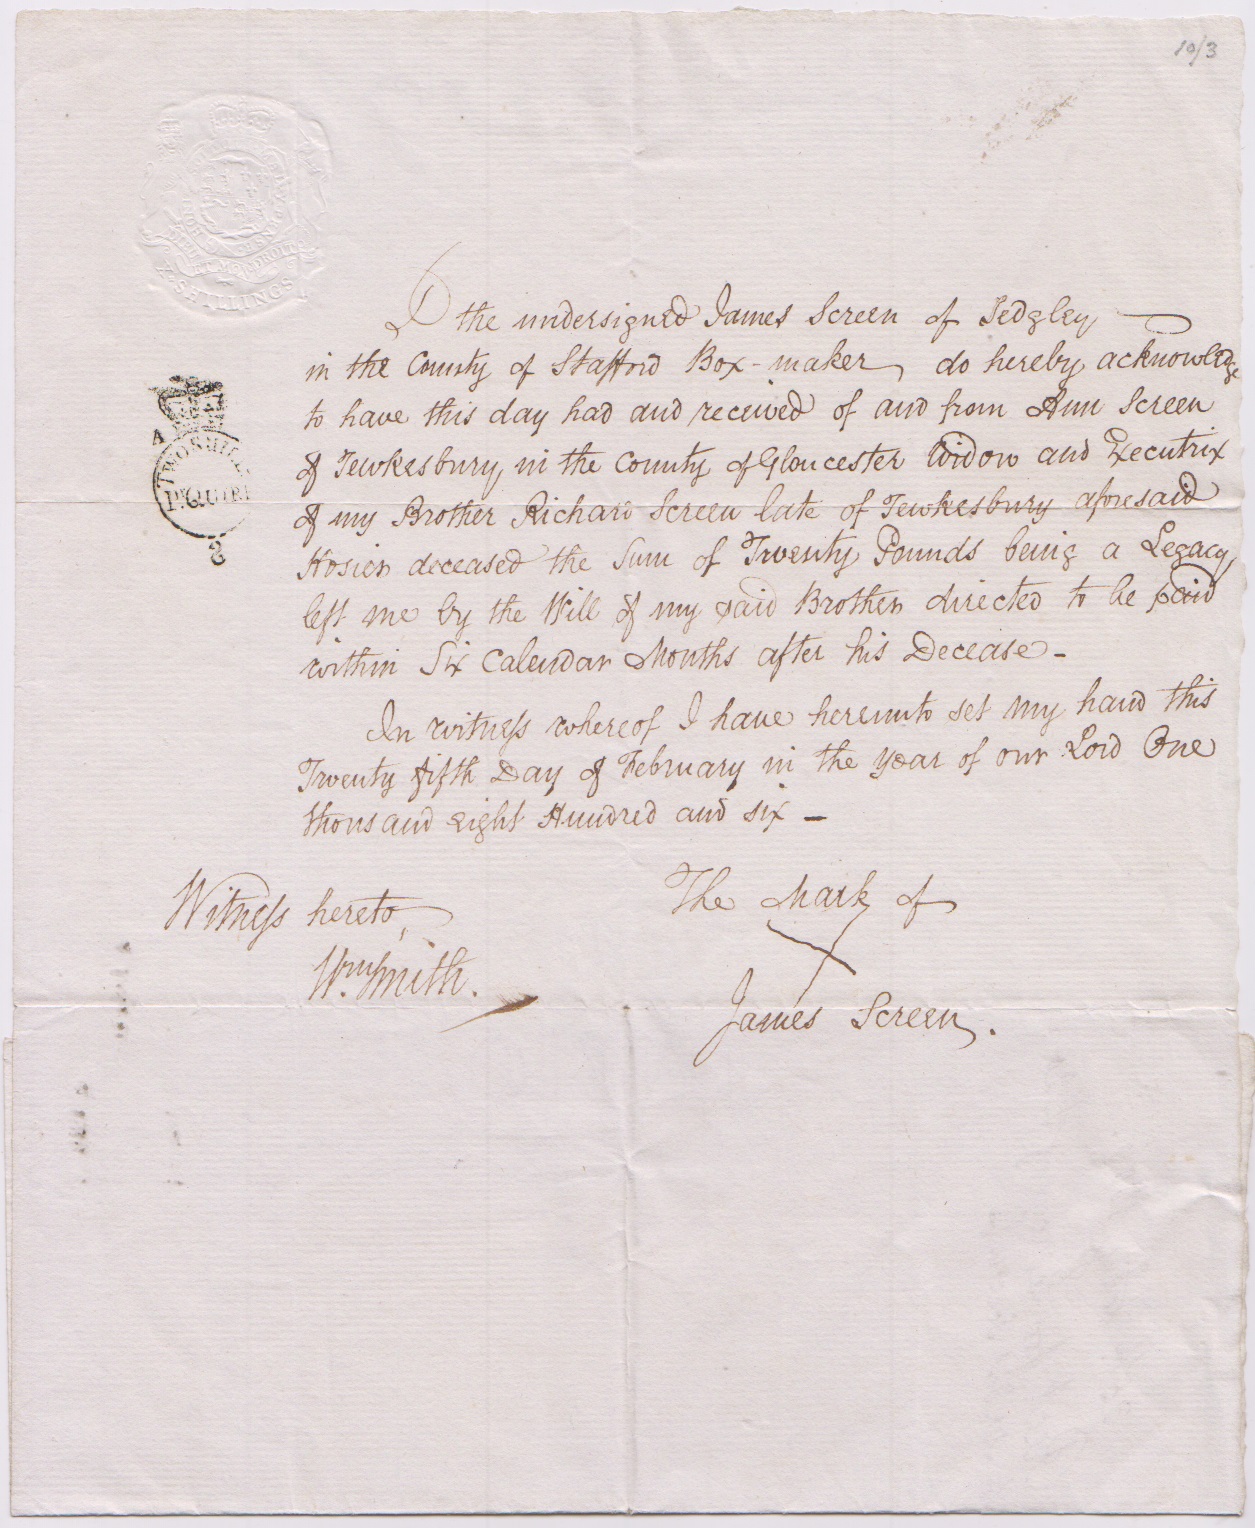 10/3
SHILLINGS
A
TWO SHILL
Pr. QUIRE
8
I the undersigned James Screen of Sedgley
in the County of Stafford Box-maker do hereby acknowledge
to have this day had and received of and from Ann Screen
of Tewkesbury in the County of Gloucester Widow and Executrix
of my Brother Richard Screen late of Tewkesbury aforesaid
Hosier deceased the Sum of Twenty Pounds being a Legacy
left me by the Will of my said Brother directed to be paid
within Six Calendar Months after his Decease -
In witness whereof I have hereunto set my hand this
Twenty fifth Day of February in the year of our Lord One
thousand eight Hundred and six -
Witness hereto,
Wm. Smith.
The Mark of
X
James Screen.